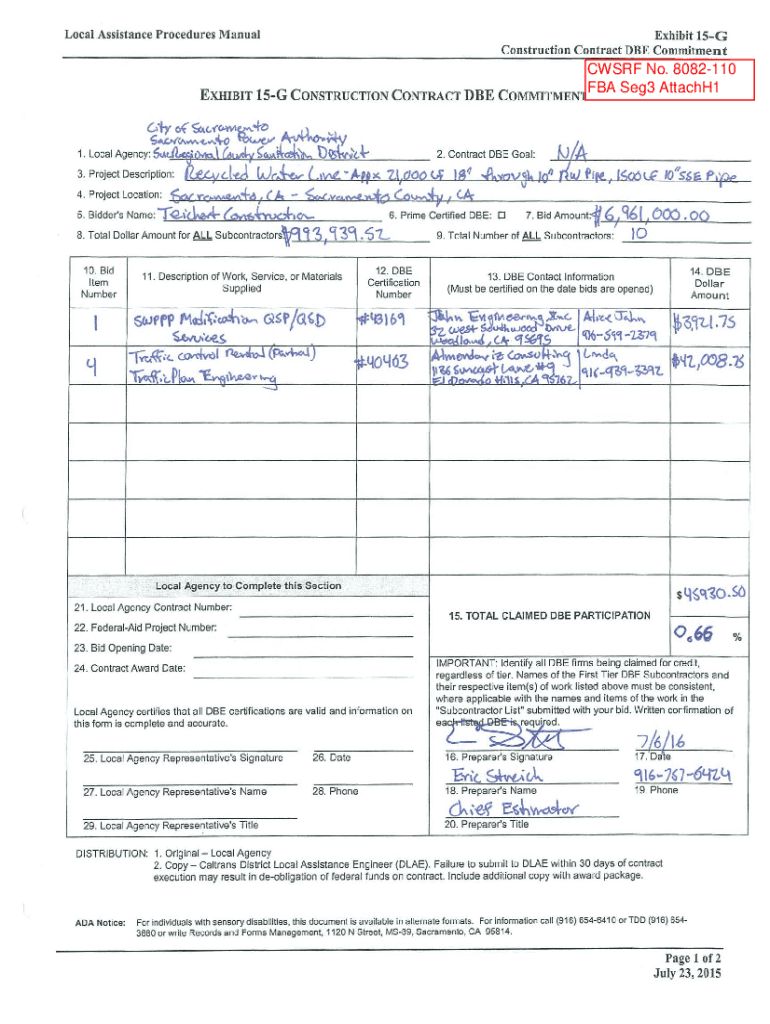 Local Assistance Procedures Manual
Exhibit 15-G
Construction Contract DBE Commitment
CWSRF No. 8082-110
FBA Seg3 AttachH1
EXHIBIT 15-G CONSTRUCTION CONTRACT DBE COMMITMENT
City of Sacramento
Sacramento Power Authority
1. Local Agency: Sac Regional County Sanitation District 2. Contract DBE Goal: N/A
3. Project Description: Recycled Water Line - Appx 21,000 LF 18" through 10" RW Pipe, 1500 LF 10" SSE Pipe
4. Project Location: Sacramento, CA - Sacramento County, CA
5. Bidder's Name: Teichert Construction 6. Prime Certified DBE: ☐ 7. Bid Amount: $6,961,000.00
8. Total Dollar Amount for ALL Subcontractors: $993,939.52 9. Total Number of ALL Subcontractors: 10
10. Bid Item Number 11. Description of Work, Service, or Materials Supplied 12. DBE Certification Number 13. DBE Contact Information (Must be certified on the date bids are opened) 14. DBE Dollar Amount
1 SWPPP Modification QSP/QSD Services #43169 John Engineering, Inc 32 West Southwood Drive Woodland, CA 95695 Alice Jahn 916-599-2379 $3,921.75
4 Traffic control Rental (Partial) Traffic Plan Engineering #40403 Almendariz Consulting 1136 Suncast Lane #9 El Dorado Hills, CA 95762 Linda 916-939-3392 $42,008.75
Local Agency to Complete this Section
21. Local Agency Contract Number:
22. Federal-Aid Project Number:
23. Bid Opening Date:
24. Contract Award Date:
15. TOTAL CLAIMED DBE PARTICIPATION
$45930.50
0.66 %
Local Agency certifies that all DBE certifications are valid and information on
this form is complete and accurate.
IMPORTANT: Identify all DBE firms being claimed for credit,
regardless of tier. Names of the First Tier DBE Subcontractors and
their respective item(s) of work listed above must be consistent,
where applicable with the names and items of the work in the
"Subcontractor List" submitted with your bid. Written confirmation of
each listed DBE is required.
7/6/16
25. Local Agency Representative's Signature 26. Date 16. Preparer's Signature 17. Date
Eric Streich 916-767-6424
27. Local Agency Representative's Name 28. Phone 18. Preparer's Name 19. Phone
Chief Estimator
29. Local Agency Representative's Title 20. Preparer's Title
DISTRIBUTION: 1. Original – Local Agency
2. Copy – Caltrans District Local Assistance Engineer (DLAE). Failure to submit to DLAE within 30 days of contract
execution may result in de-obligation of federal funds on contract. Include additional copy with award package.
ADA Notice: For individuals with sensory disabilities, this document is available in alternate formats. For information call (916) 654-6410 or TDD (916) 654-
3880 or write Records and Forms Management, 1120 N Street, MS-89, Sacramento, CA 95814.
Page 1 of 2
July 23, 2015